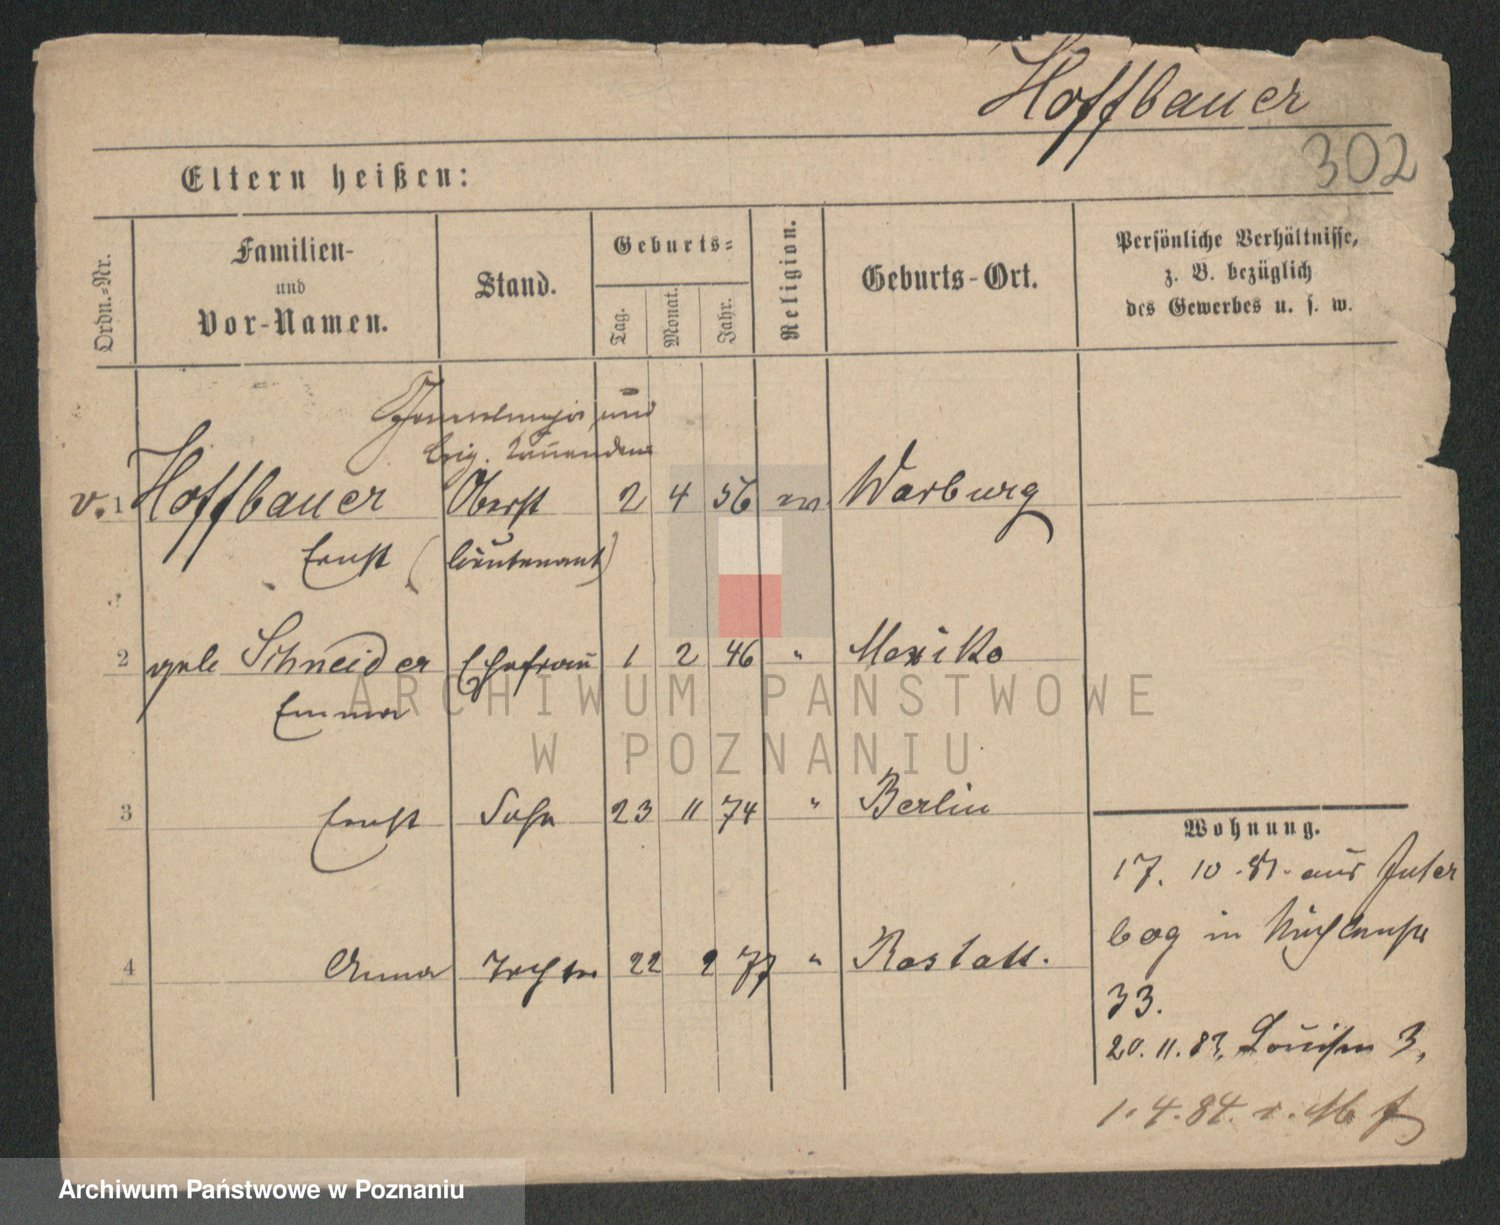 Hoffbauer
302
Eltern heißen:
Ordn.-Nr.
Familien-
und
Vor-Namen.
Stand.
Geburts-
Tag.
Monat.
Jahr.
Religion.
Geburts-Ort.
Persönliche Verhältnisse,
z. B. bezüglich
des Gewerbes u. s. w.
Generalmajor und
Brig.
v. 1 Hoffbauer Oberst 2 4 36 ev. Warburg
Ernst (lieutenant)
2 geb. Schneider Ehefrau 1 2 46 " Mexiko
Emma
3 Ernst Sohn 23 11 74 " Berlin
4 Anna Tochter 22 2 77 " Rastatt.
Wohnung.
17. 10. 81. aus Jüter
bog in
33.
20. 11. 83. Louisen 3,
1. 4. 84.
ARCHIWUM PAŃSTWOWE
W POZNANIU
Archiwum Państwowe w Poznaniu